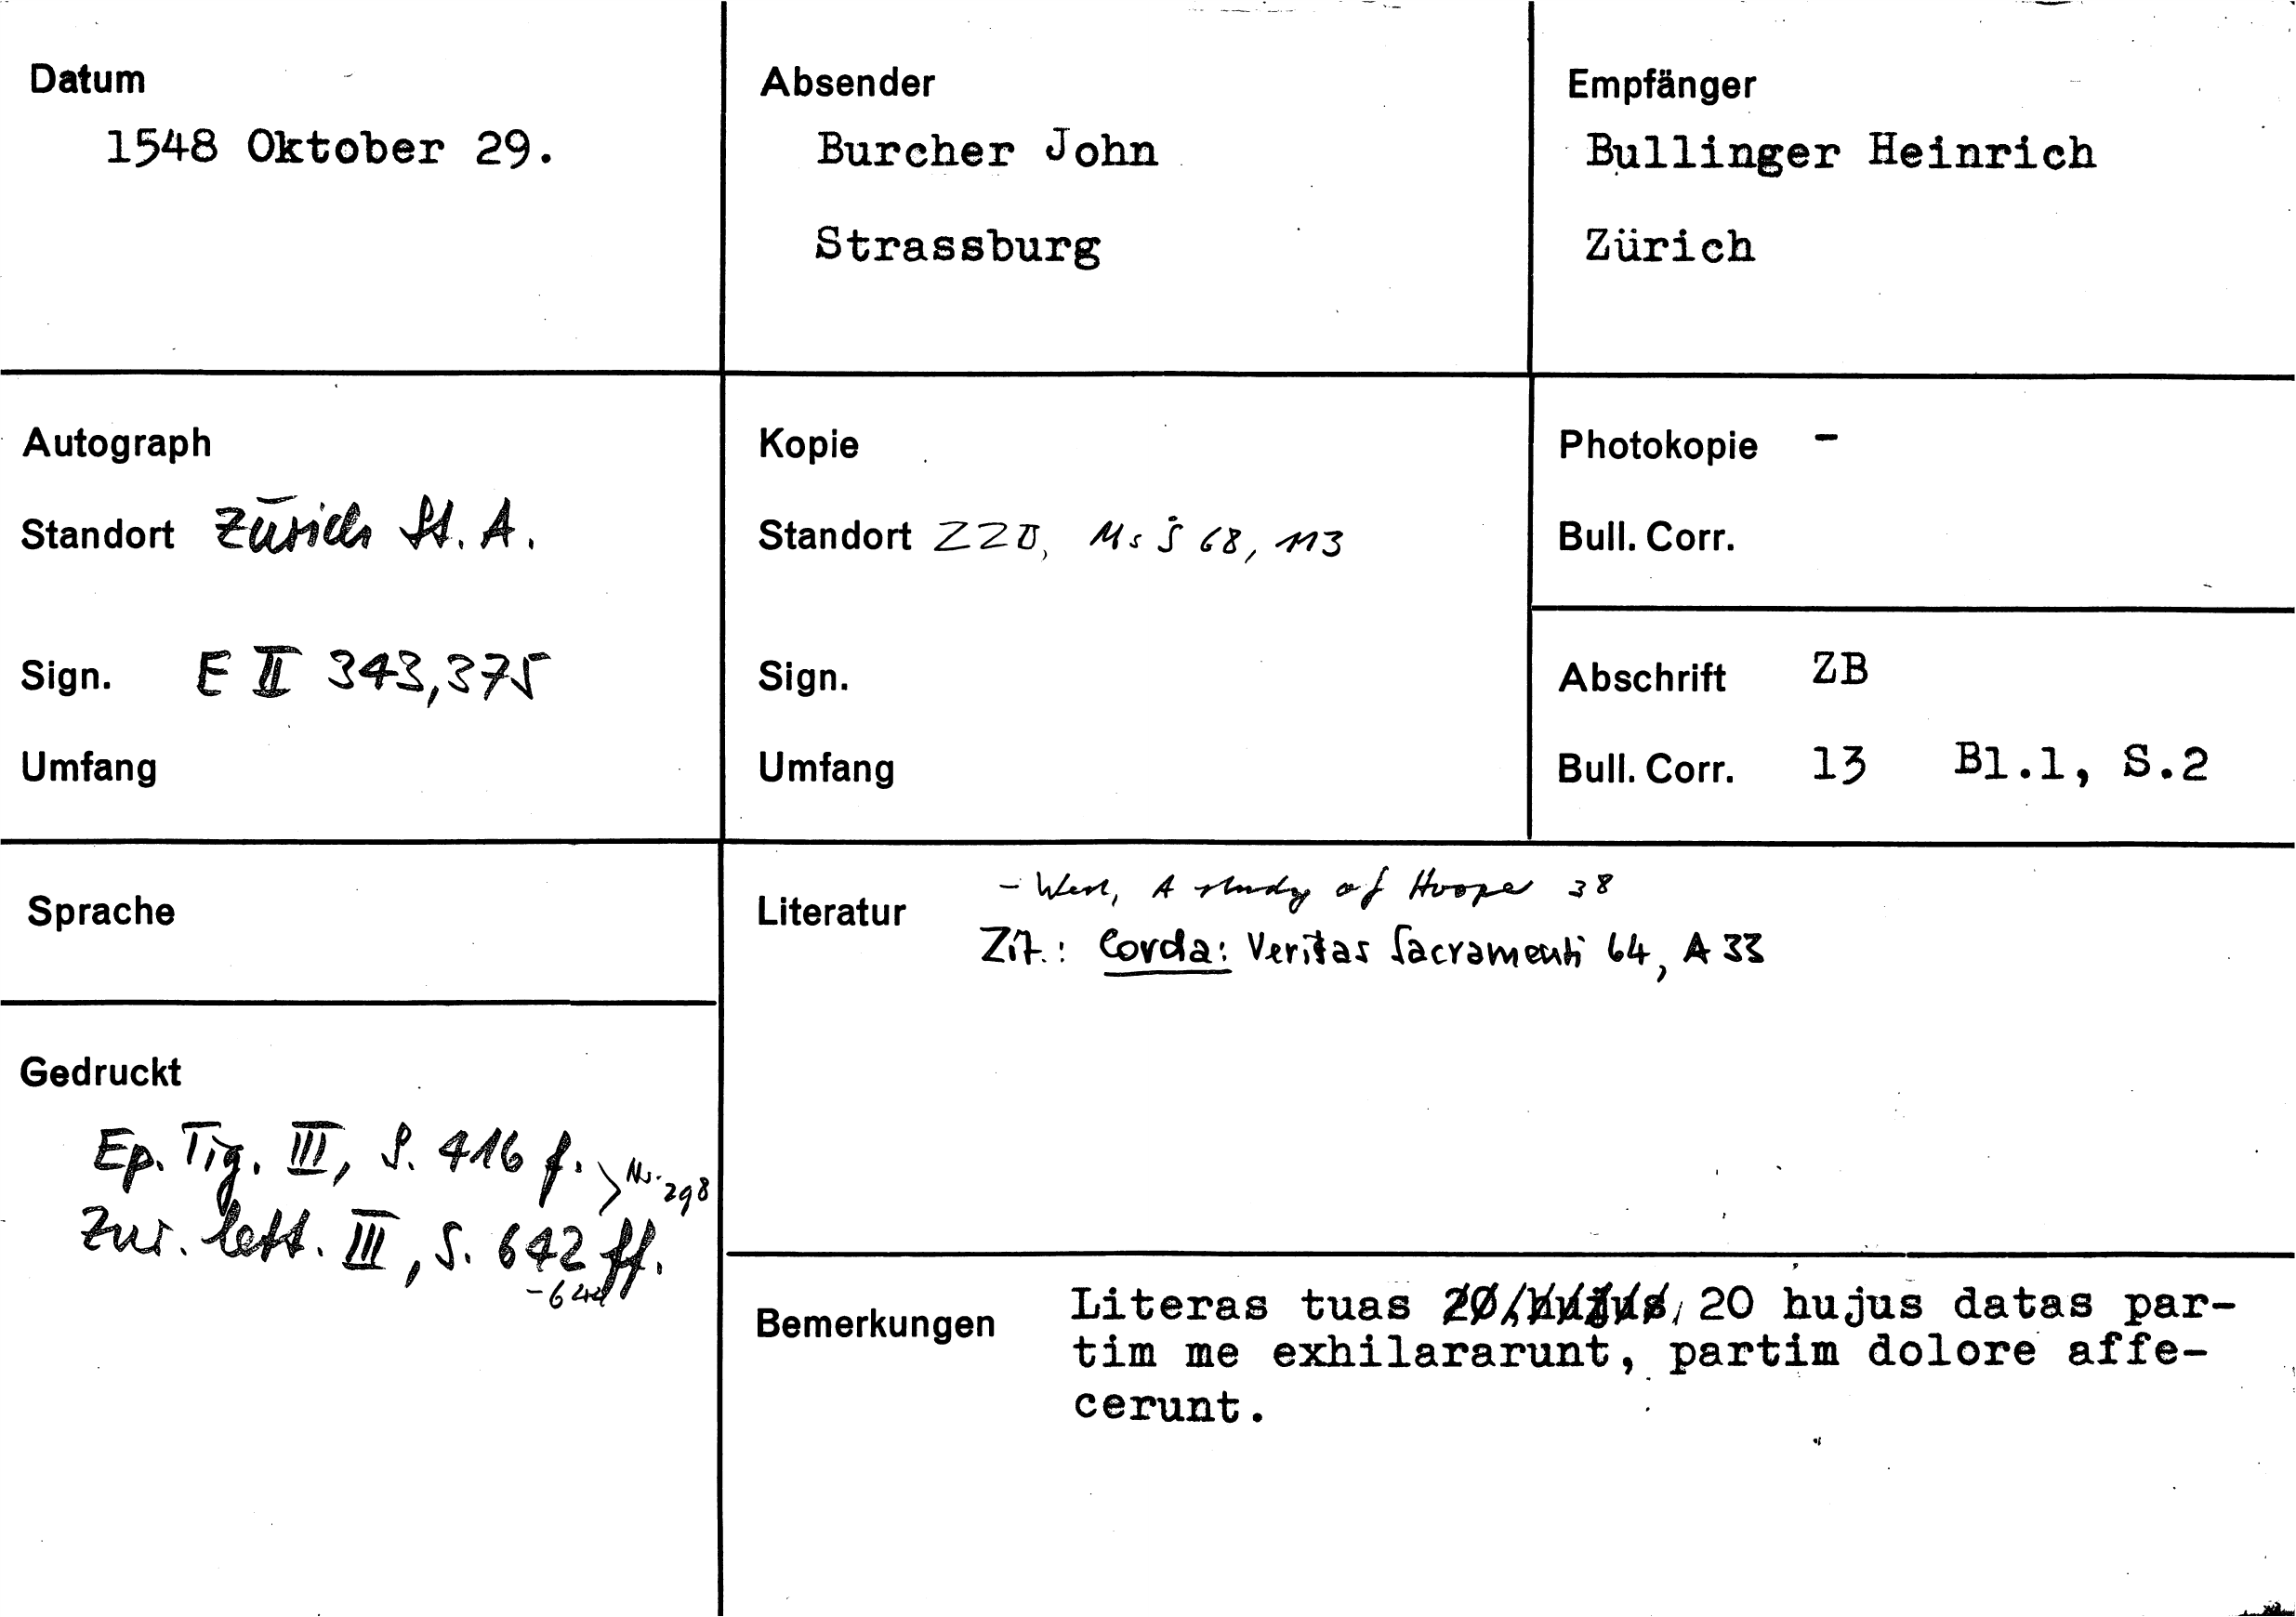 Datum
1548 Oktober 29.
Absender
Burcher John
Strassburg
Empfänger
Bullinger Heinrich
Zürich
Autograph
Standort Zürich St. A.
Sign. E II 343,375
Umfang
Kopie
Standort ZZB, Ms S 68, 113
Sign.
Umfang
Photokopie -
Bull. Corr.
Abschrift ZB
Bull. Corr. 13 Bl.1, S.2
Sprache
Gedruckt
Ep. Tig. III, S. 416 f.
Nr. 298
Zur. lett. III, S. 642 ff.
-644
Literatur
- West, A study of Hooper 38
Zit.: Corda: Veritas Sacramenti 64, A 33
Bemerkungen
Literas tuas 20 hujus 20 hujus datas par-
tim me exhilararunt, partim dolore affe-
cerunt.